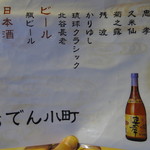 忠孝
久米仙
菊之露
残波
かりゆし
琉球クラシック
北谷長老
ビール
瓶ビール
日本酒
でん小町